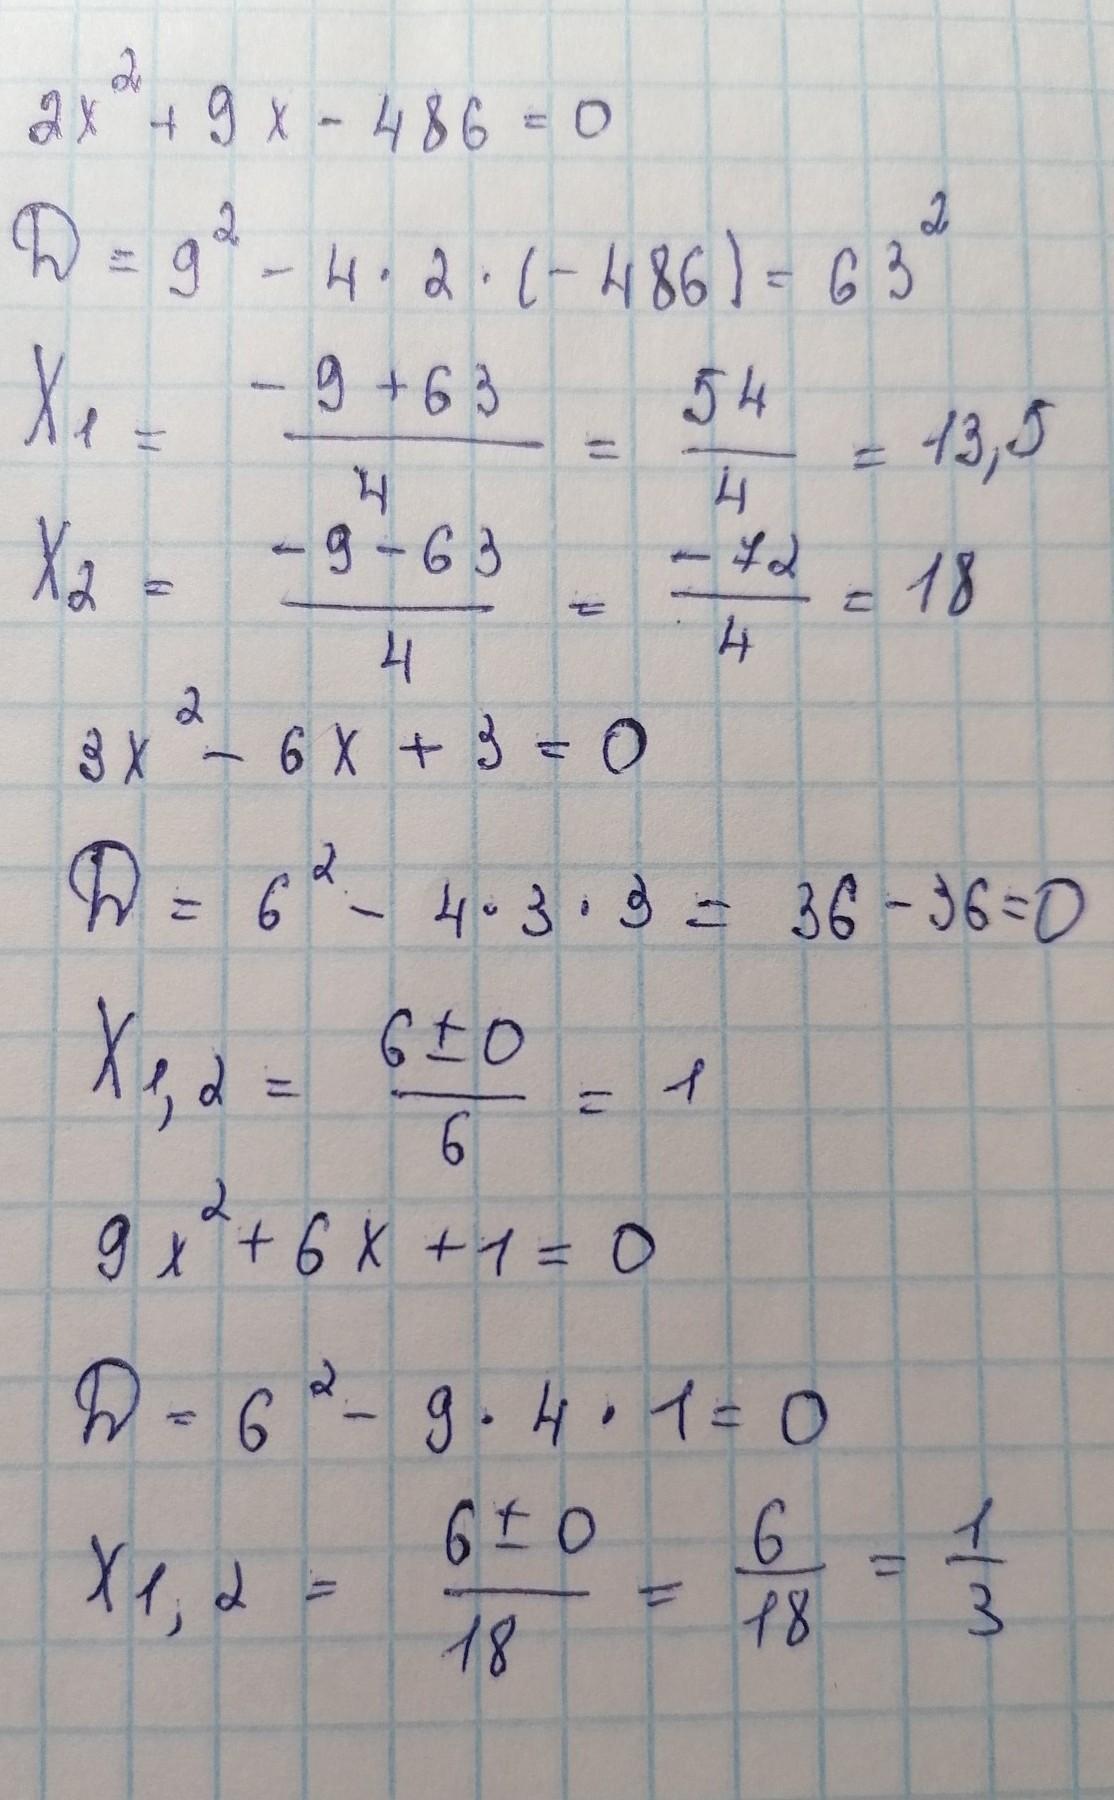 2x² + 9x - 486 = 0
D = 9² - 4 · 2 · (-486) = 63²
X₁ = (-9 + 63)/4 = 54/4 = 13,5
X₂ = (-9 - 63)/4 = -72/4 = 18
3x² - 6x + 3 = 0
D = 6² - 4 · 3 · 3 = 36 - 36 = 0
X₁,₂ = (6 ± 0)/6 = 1
9x² + 6x + 1 = 0
D = 6² - 9 · 4 · 1 = 0
X₁,₂ = (6 ± 0)/18 = 6/18 = 1/3